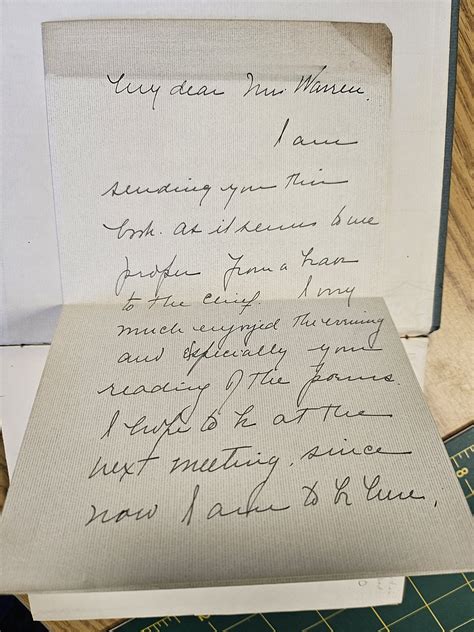 My dear Mrs. Warren,
I am
sending you this
book. as it seems to me
proper from a brave
to the chief. I very
much enjoyed the evening
and especially your
reading of the poems.
I hope to be at the
next meeting, since
now I am to be here.
8